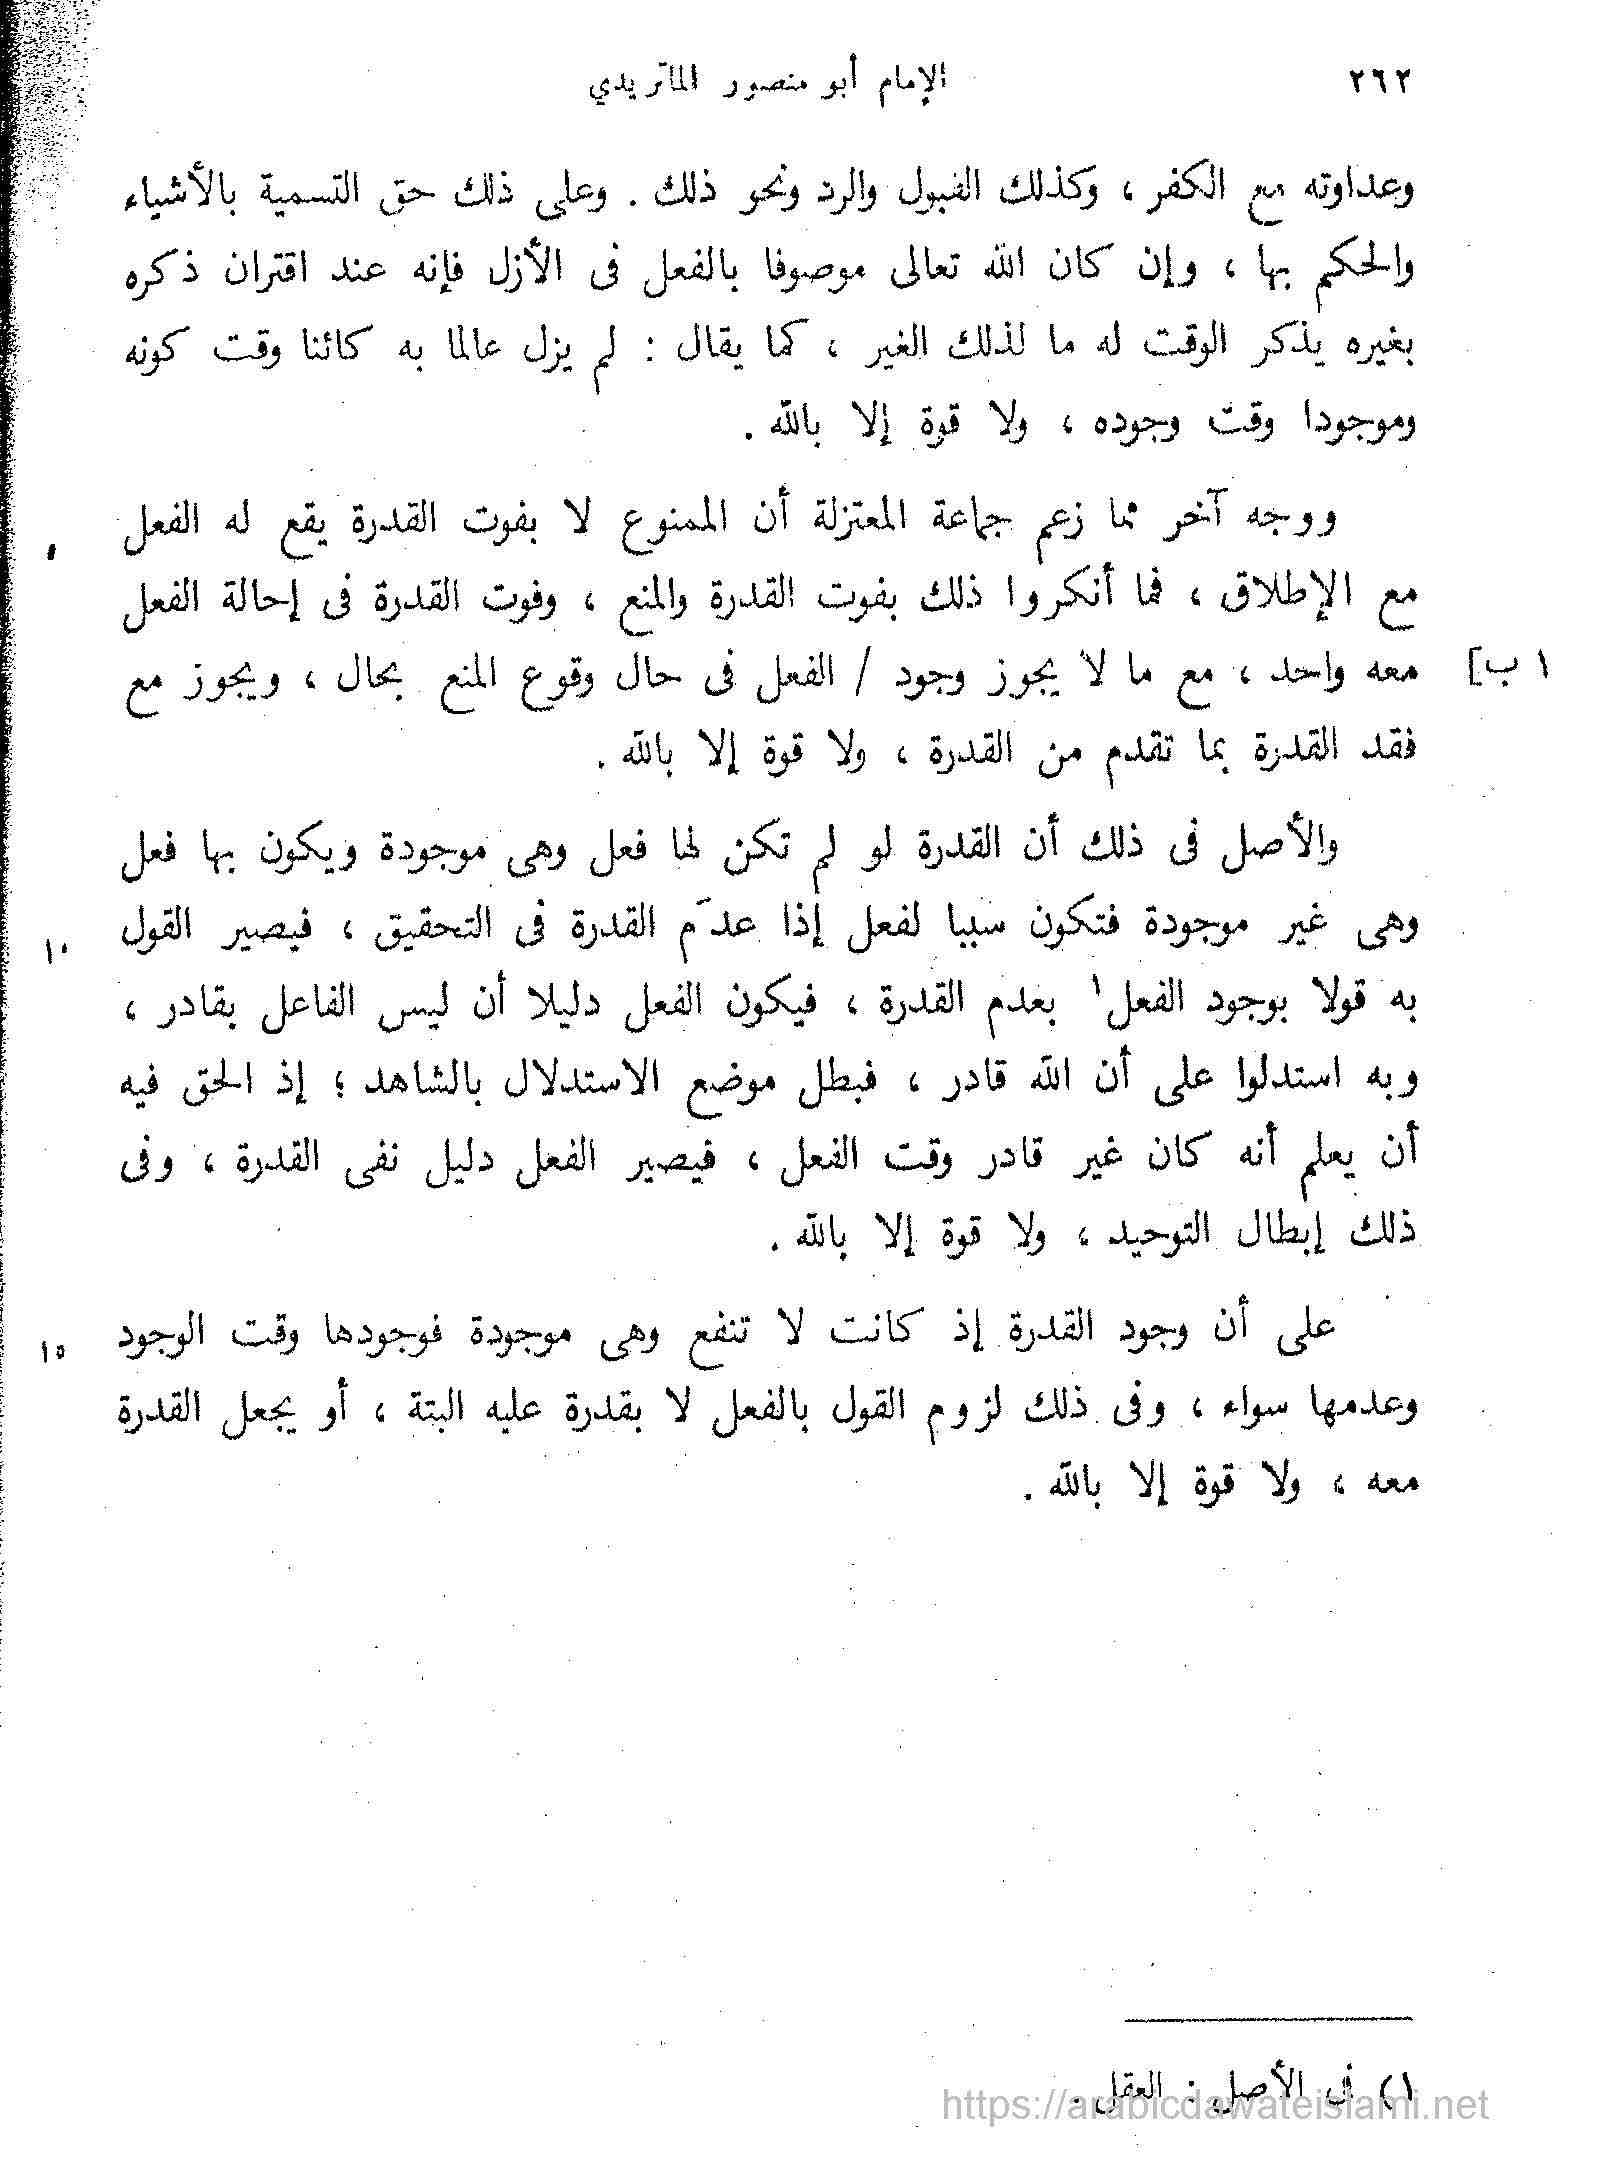 ٢٦٢
الإمام أبو منصور الماتريدي
وعداوته مع الكفر ، وكذلك القبول والرد ونحو ذلك . وعلى ذلك حق التسمية بالأشياء
والحكم بها ، وإن كان الله تعالى موصوفا بالفعل فى الأزل فإنه عند اقتران ذكره
بغيره يذكر الوقت له ما لذلك الغير ، كما يقال : لم يزل عالما به كائنا وقت كونه
وموجودا وقت وجوده ، ولا قوة إلا بالله .
ووجه آخر مما زعم جماعة المعتزلة أن الممنوع لا بفوت القدرة يقع له الفعل
مع الإطلاق ، فما أنكروا ذلك بفوت القدرة والمنع ، وفوت القدرة فى إحالة الفعل
١ ب] معه واحد ، مع ما لا يجوز وجود / الفعل فى حال وقوع المنع بحال ، ويجوز مع
فقد القدرة بما تقدم من القدرة ، ولا قوة إلا بالله .
والأصل فى ذلك أن القدرة لو لم تكن لها فعل وهى موجودة ويكون بها فعل
وهى غير موجودة فتكون سببا لفعل إذا عدَم القدرة فى التحقيق ، فيصير القول ١٠
به قولا بوجود الفعل١ بعدم القدرة ، فيكون الفعل دليلا أن ليس الفاعل بقادر ،
وبه استدلوا على أن الله قادر ، فبطل موضع الاستدلال بالشاهد ؛ إذ الحق فيه
أن يعلم أنه كان غير قادر وقت الفعل ، فيصير الفعل دليل نفى القدرة ، وفى
ذلك إبطال التوحيد ، ولا قوة إلا بالله .
على أن وجود القدرة إذ كانت لا تنفع وهى موجودة فوجودها وقت الوجود ١٥
وعدمها سواء ، وفى ذلك لزوم القول بالفعل لا بقدرة عليه البتة ، أو يجعل القدرة
معه ، ولا قوة إلا بالله .
١) فى الأصل : العقل .
https://arabicdawateislami.net